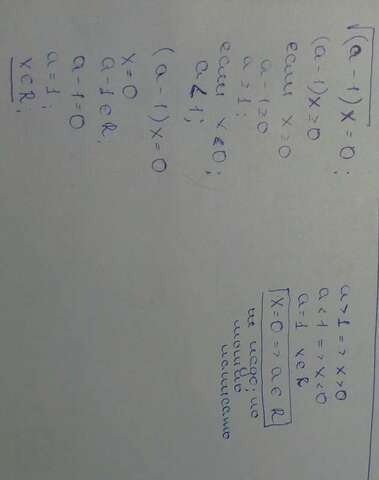 √(a-1)x = 0;
(a-1)x ≥ 0
если x ≥ 0
a-1 ≥ 0
a ≥ 1;
если x < 0;
a < 1;
(a-1)x = 0
x = 0
a-1 ∈ R;
a-1 = 0
a = 1;
x ∈ R;
a > 1 => x > 0
a < 1 => x < 0
a = 1 x ∈ R
x = 0 => a ∈ R
не надо, но
можно
написать